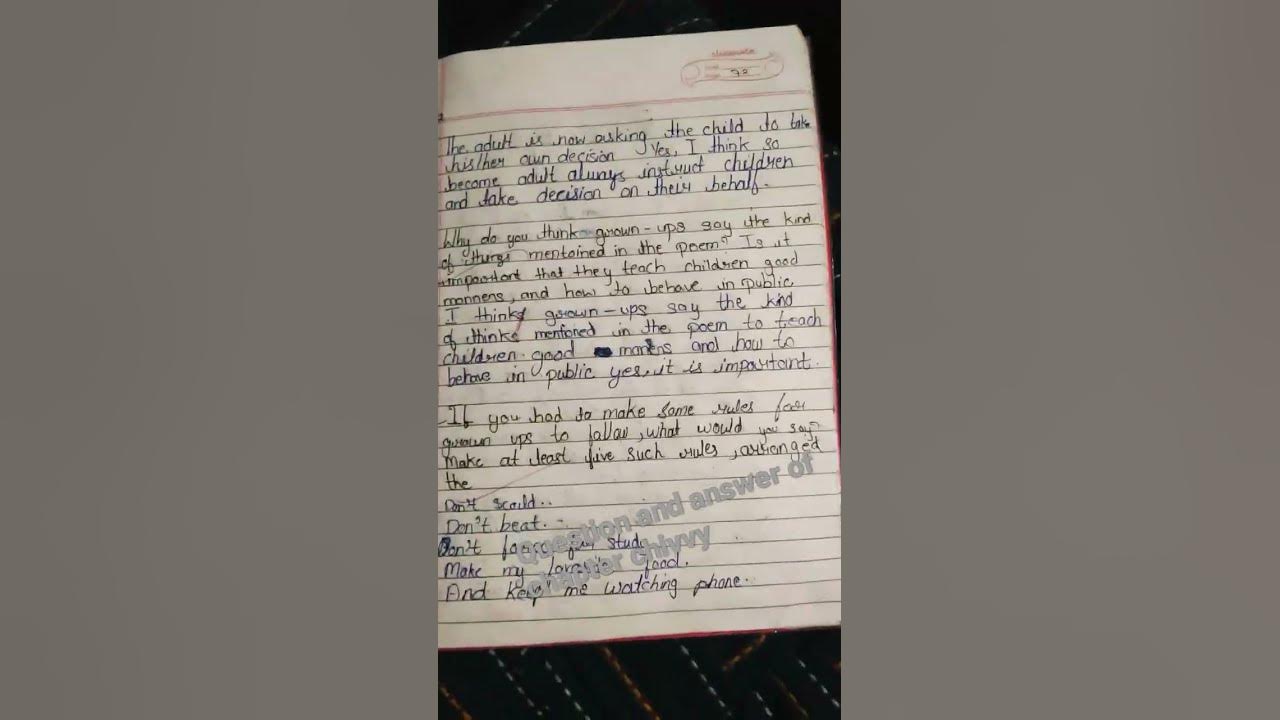 classmate
72
The adult is now asking the child to take
his/her own decision Yes, I think so
become adult always instruct children
and take decision on their behalf.
Why do you think grown-ups say the kind
of things mentoined in the poem? Is it
impoortant that they teach children good
mannens, and how to behave in public
I thinks grown-ups say the kind
of thinks mentored in the poem to teach
children good maners and how to
behave in public yes, it is impoartant.
If you had to make some rules foor
grown ups to follow, what would you say?
Make at least five such rules, arranged
the
Don't scould..
Don't beat.
Don't for study
Make my food.
And keep me watching phone.
Question and answer of
chapter chivvy